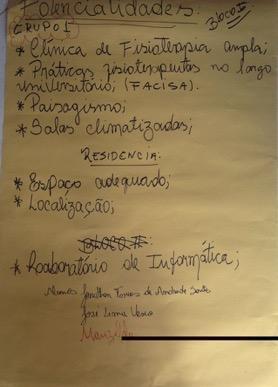 Potencialidades:
GRUPO I Bloco II
* Clínica de Fisioterapia ampla;
* Práticas fisioterapeutas no longo
universitório; (FACISA).
* Paisagismo;
* Salas climatizadas;
RESIDENCIA:
* Espaço adequado;
* Localização;
BLOCO II:
* Roaboratório de Informática;
Nomes Jonathan Torres de Andrade
José Lima